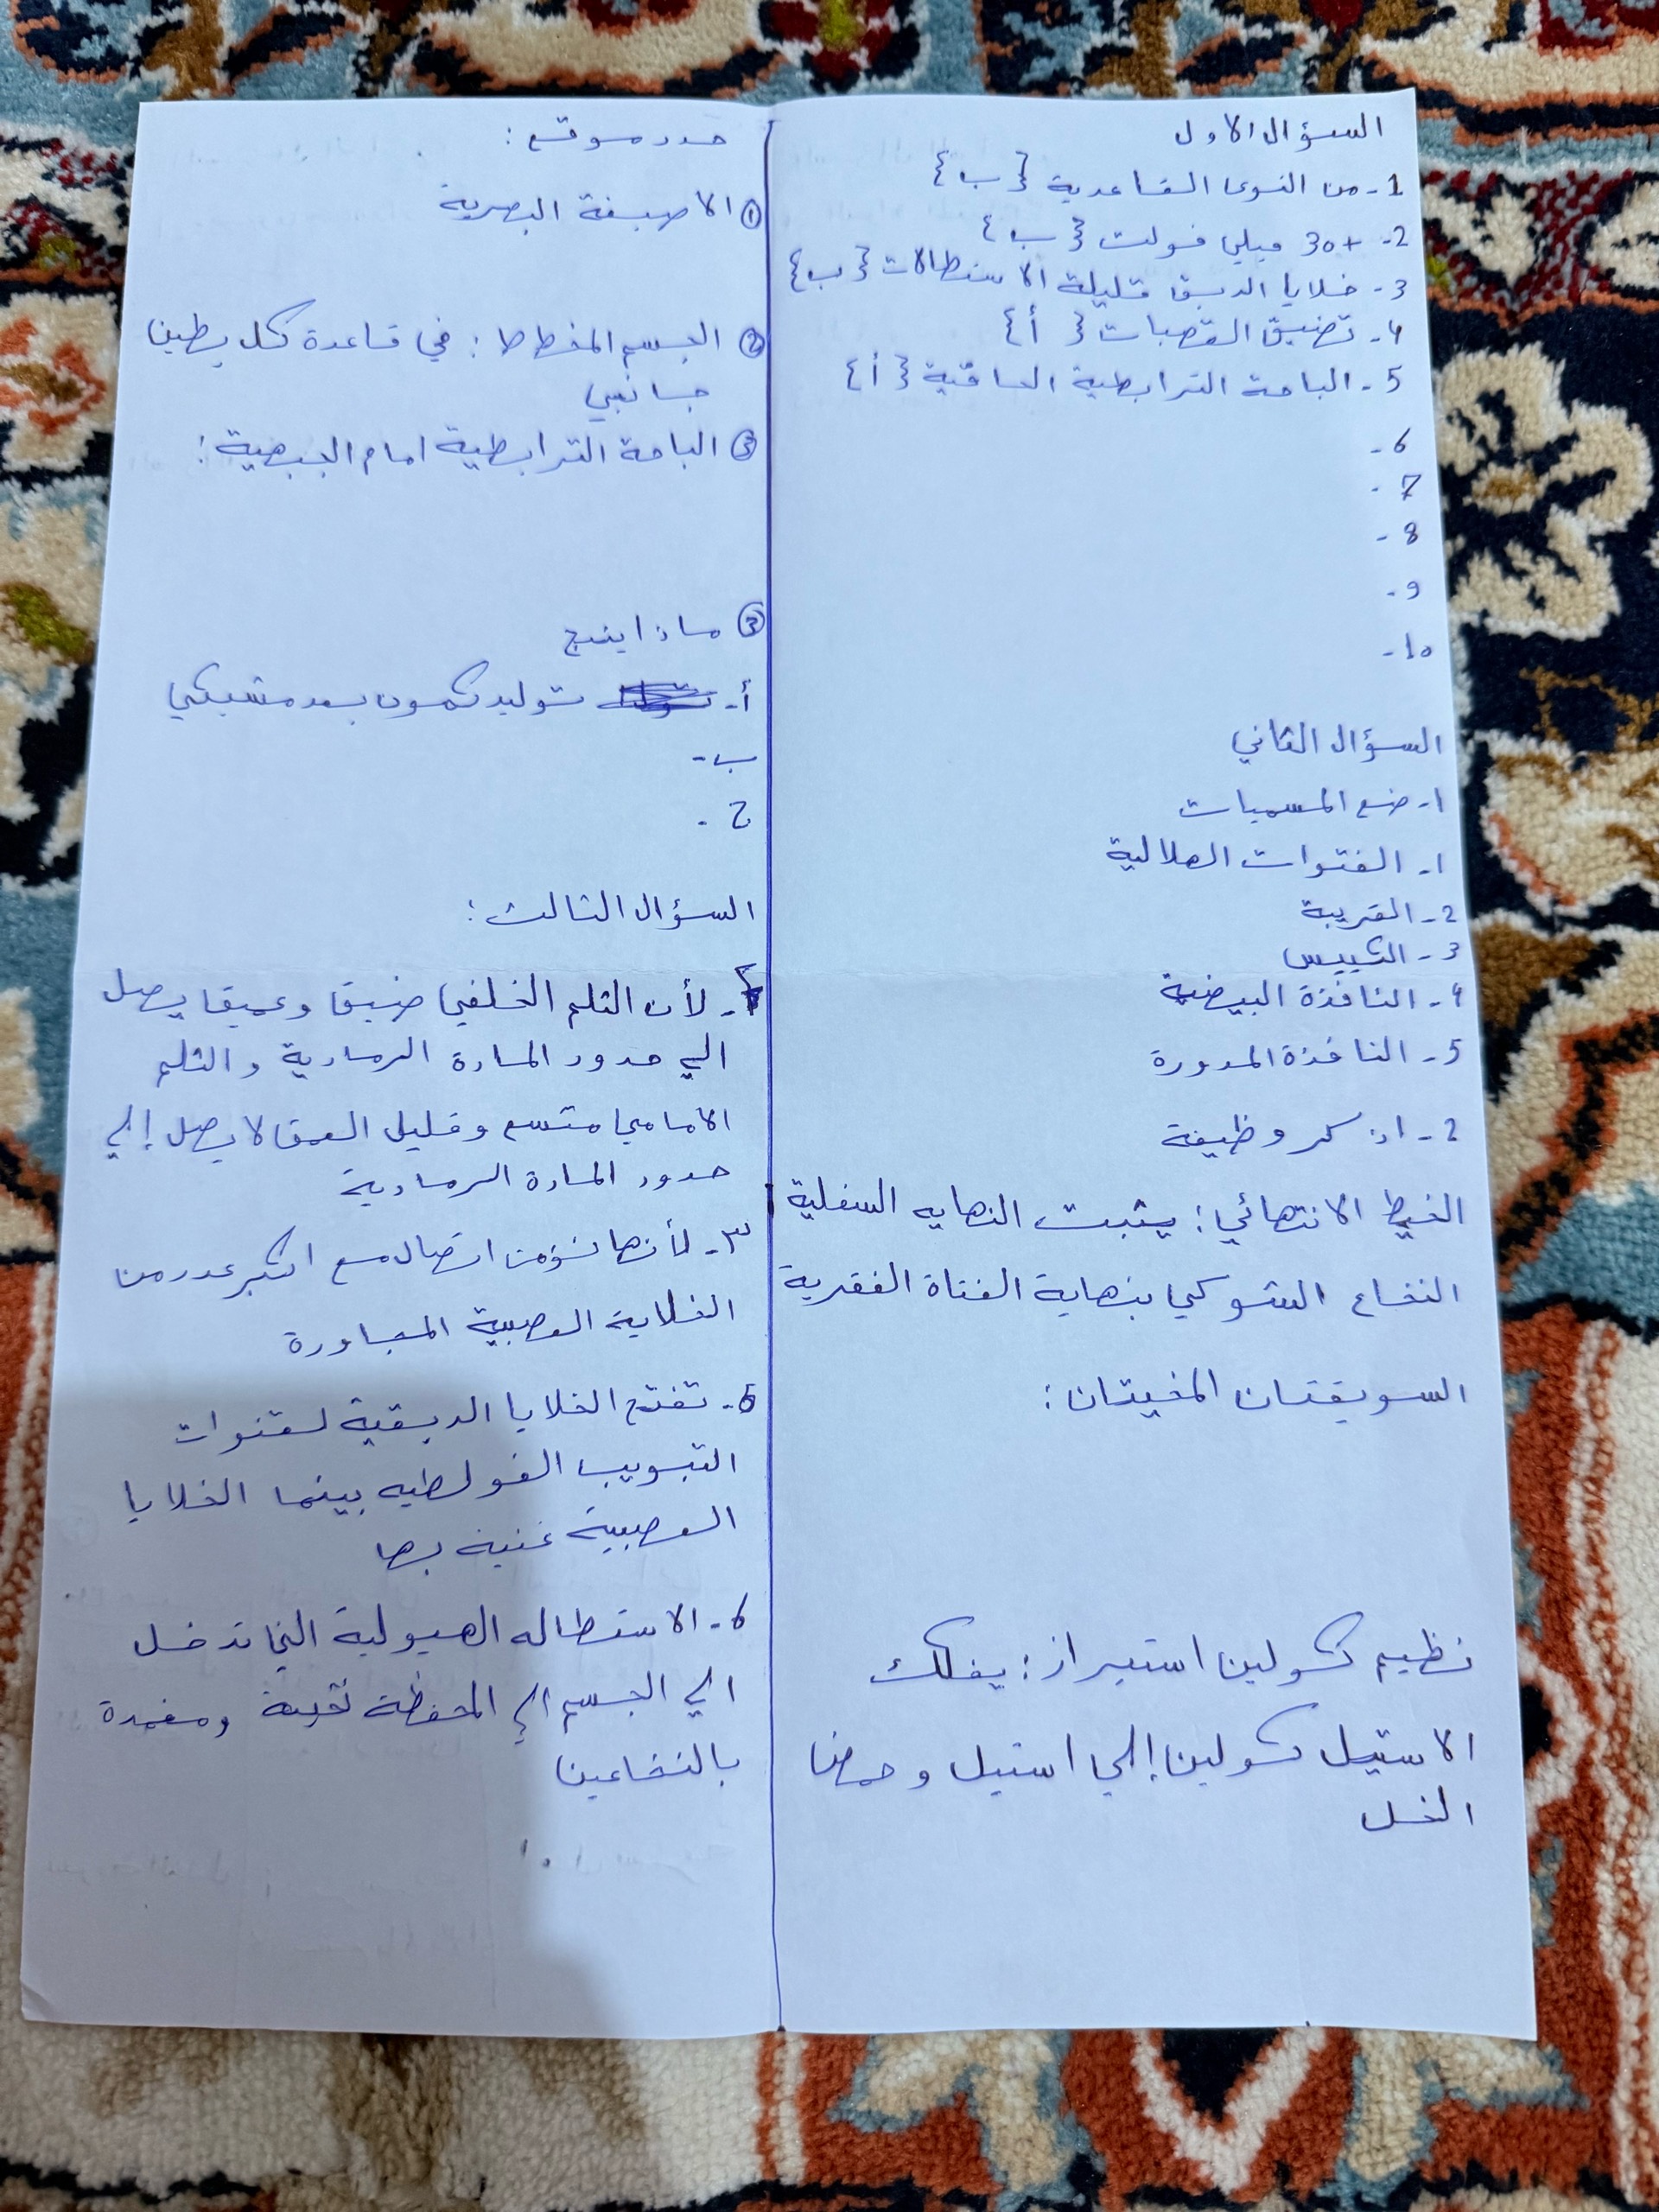 السؤال الاول
1- من النوى القاعدية {ب}
2- +30 ميلي فولت {ب}
3- خلايا الدبق قليلة الاستطالات {ب}
4- تضيق القصبات {أ}
5- الباحة الترابطية الحافية {أ}
6-
7-
8-
9-
10-
السؤال الثاني
1- ضع المسميات
1- القنوات الهلالية
2- القريبة
3- الكييس
4- النافذة البيضية
5- النافذة المدورة
2- اذكر وظيفة
الخيط الانتهائي: يثبت النهايه السفلية
النخاع الشوكي بنهاية القناة الفقرية
السويقتان المخيتان:
نظيم كولين استيراز: يفكك
الاستيل كولين إلى استيل وحمض
الخل
حدد موقع:
① الاصبغة البصرية
② الجسم المخطط: في قاعدة كل بطين
جانبي
③ الباحة الترابطية امام الجبهية:
③ ماذا ينتج
أ- توليد كمون بعد مشبكي
ب-
ج-
السؤال الثالث:
2- لأن الثلم الخلفي ضيق وعميق يصل
الى حدود المادة الرمادية والثلم
الامامي متسع وقليل العمق لا يصل إلى
حدود المادة الرمادية
3- لأنها تؤمن اتصال مع اكبر عدد من
الخلاية العصبية المجاورة
5- تفتح الخلايا الدبقية لقنوات
التبويب الفولطيه بينما الخلايا
العصبية غنية بها
6- الاستطاله الهيولية التي تدخل
الى الجسم إلى المحفظة ثخينة ومغمدة
بالنخاعين